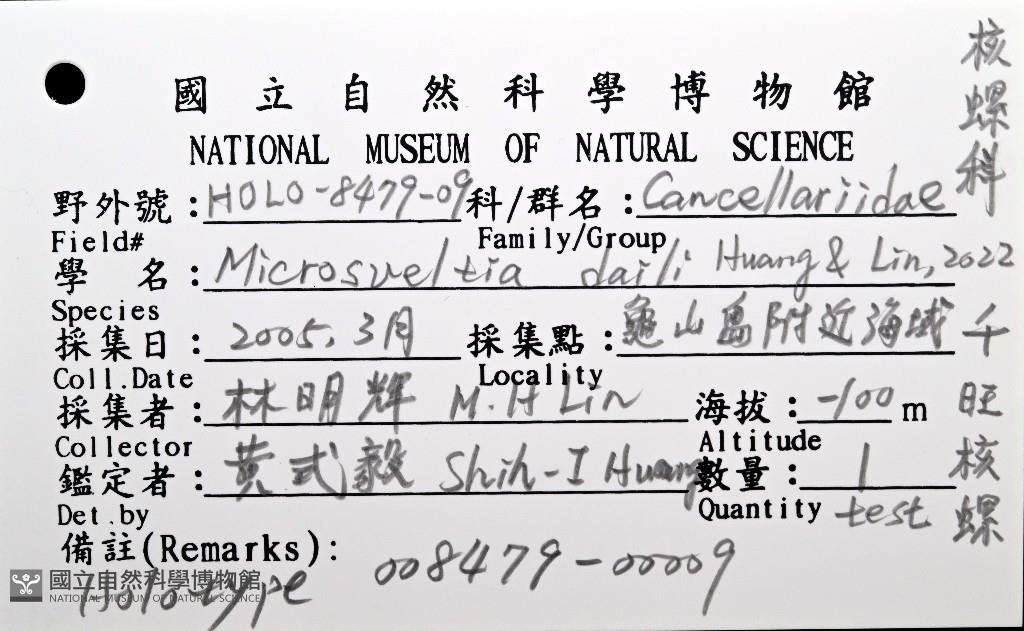 國立自然科學博物館
NATIONAL MUSEUM OF NATURAL SCIENCE
野外號：HOLO-8479-09 科/群名：Cancellariidae
Field# Family/Group
學 名：Microsveltia daili Huang & Lin, 2022
Species
採集日：2005. 3月 採集點：龜山島附近海域
Coll.Date Locality
採集者：林明輝 M.H Lin 海拔：-100 m
Collector Altitude
鑑定者：黃式毅 Shih-I Huang 數量：1
Det.by Quantity test
備註(Remarks)：
008479-00009
Holotype
核螺科
千旺核螺
國立自然科學博物館
NATIONAL MUSEUM OF NATURAL SCIENCE